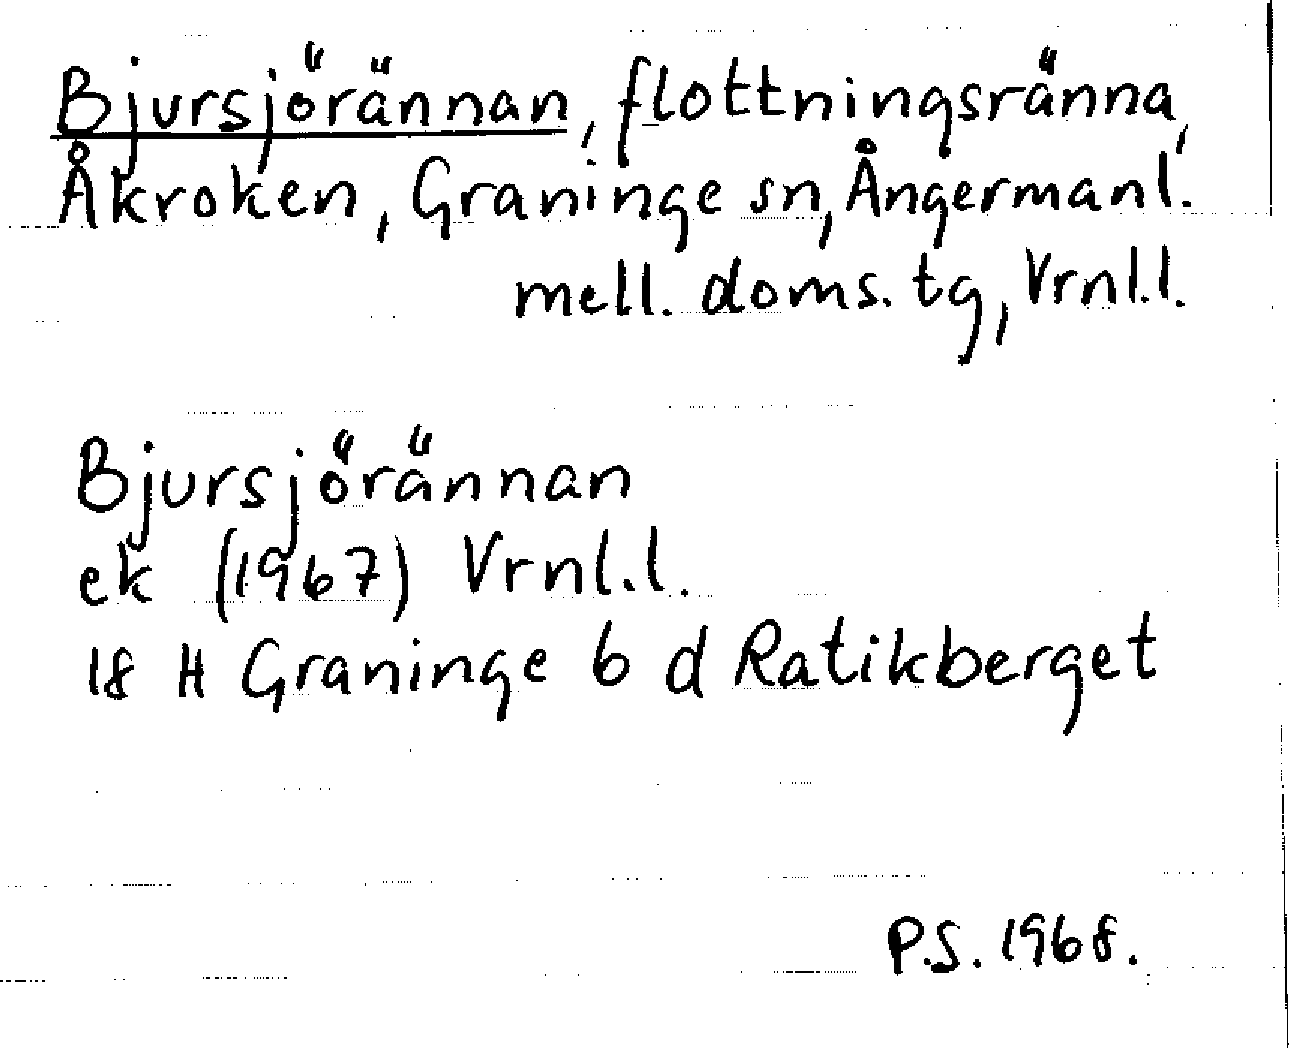 Bjursjörännan, flottningsränna,
Åkroken, Graninge sn, Ångermanl.
mell. doms. tg, Vrnl.l.
Bjursjörännan
ek (1967) Vrnl.l.
18 H Graninge 6 d Ratikberget
P.S. 1968.